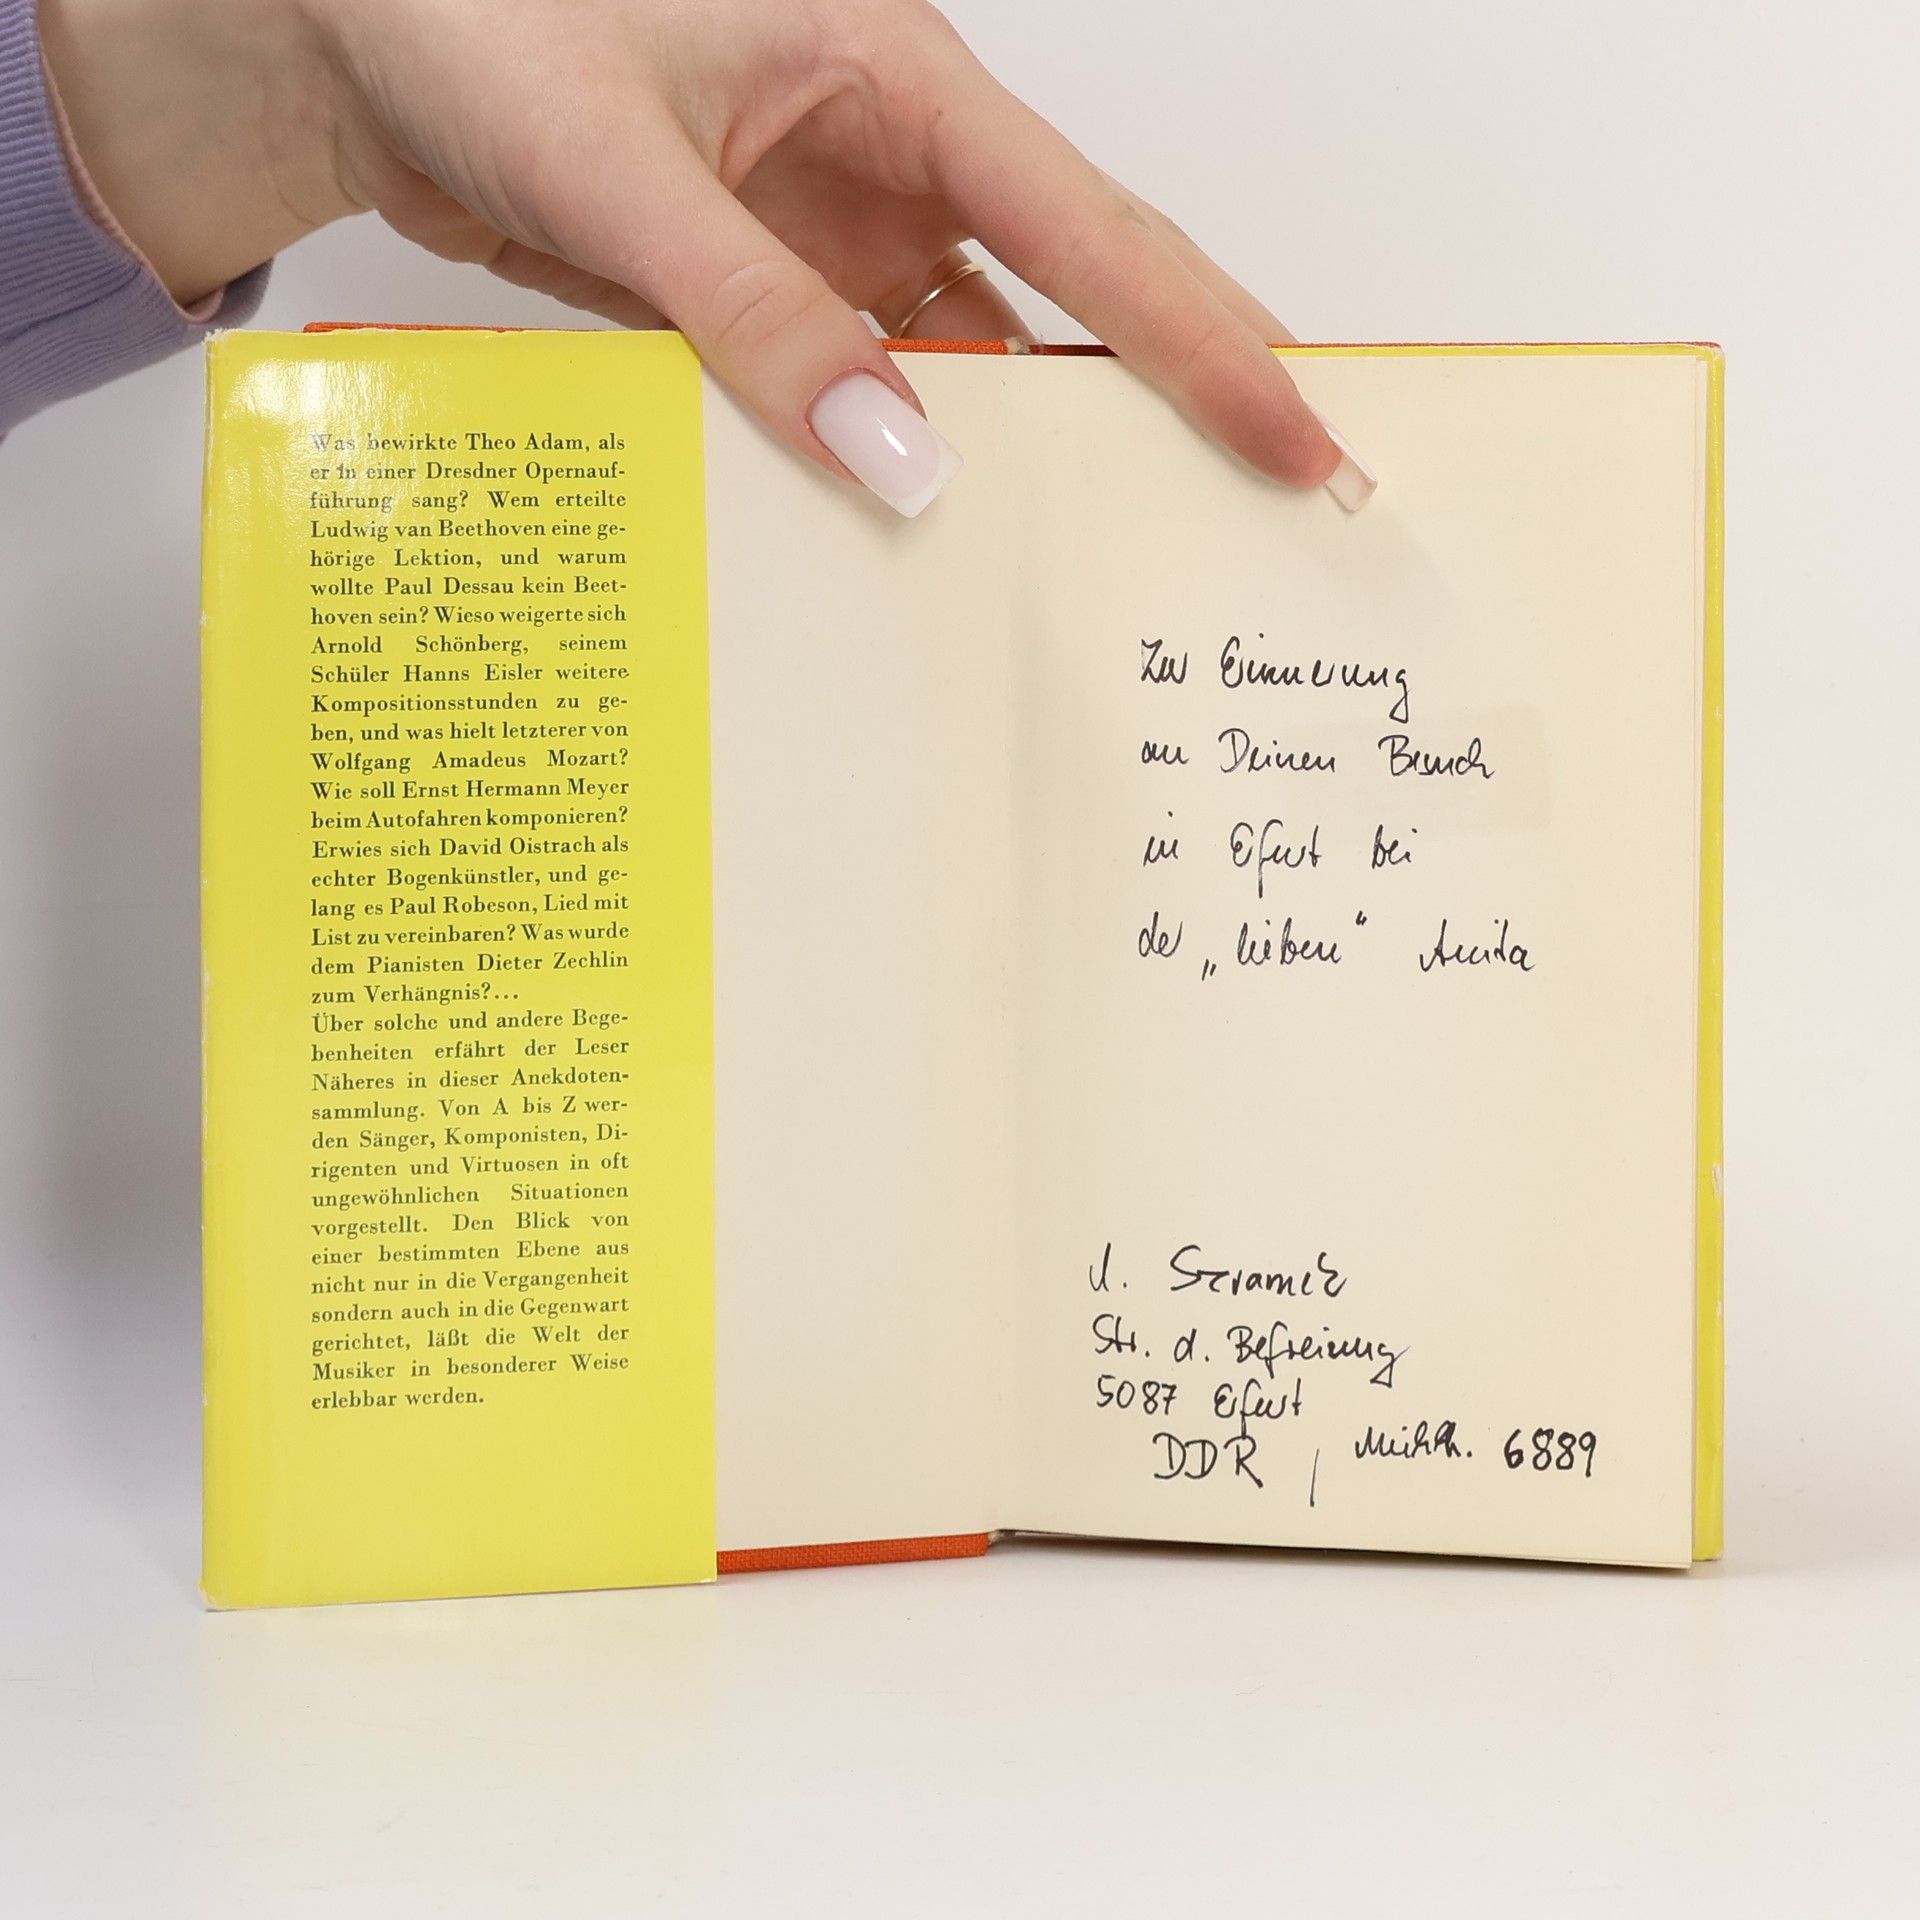 Was bewirkte Theo Adam, als
er in einer Dresdner Opernauf-
führung sang? Wem erteilte
Ludwig van Beethoven eine ge-
hörige Lektion, und warum
wollte Paul Dessau kein Beet-
hoven sein? Wieso weigerte sich
Arnold Schönberg, seinem
Schüler Hanns Eisler weitere
Kompositionsstunden zu ge-
ben, und was hielt letzterer von
Wolfgang Amadeus Mozart?
Wie soll Ernst Hermann Meyer
beim Autofahren komponieren?
Erwies sich David Oistrach als
echter Bogenkünstler, und ge-
lang es Paul Robeson, Lied mit
List zu vereinbaren? Was wurde
dem Pianisten Dieter Zechlin
zum Verhängnis?...
Über solche und andere Bege-
benheiten erfährt der Leser
Näheres in dieser Anekdoten-
sammlung. Von A bis Z wer-
den Sänger, Komponisten, Di-
rigenten und Virtuosen in oft
ungewöhnlichen Situationen
vorgestellt. Den Blick von
einer bestimmten Ebene aus
nicht nur in die Vergangenheit
sondern auch in die Gegenwart
gerichtet, läßt die Welt der
Musiker in besonderer Weise
erlebbar werden.
Zur Erinnerung
an Deinen Besuch
in Erfurt bei
der „lieben“ Anita
Szramek
Str. d. Befreiung
5087 Erfurt
DDR , 6889